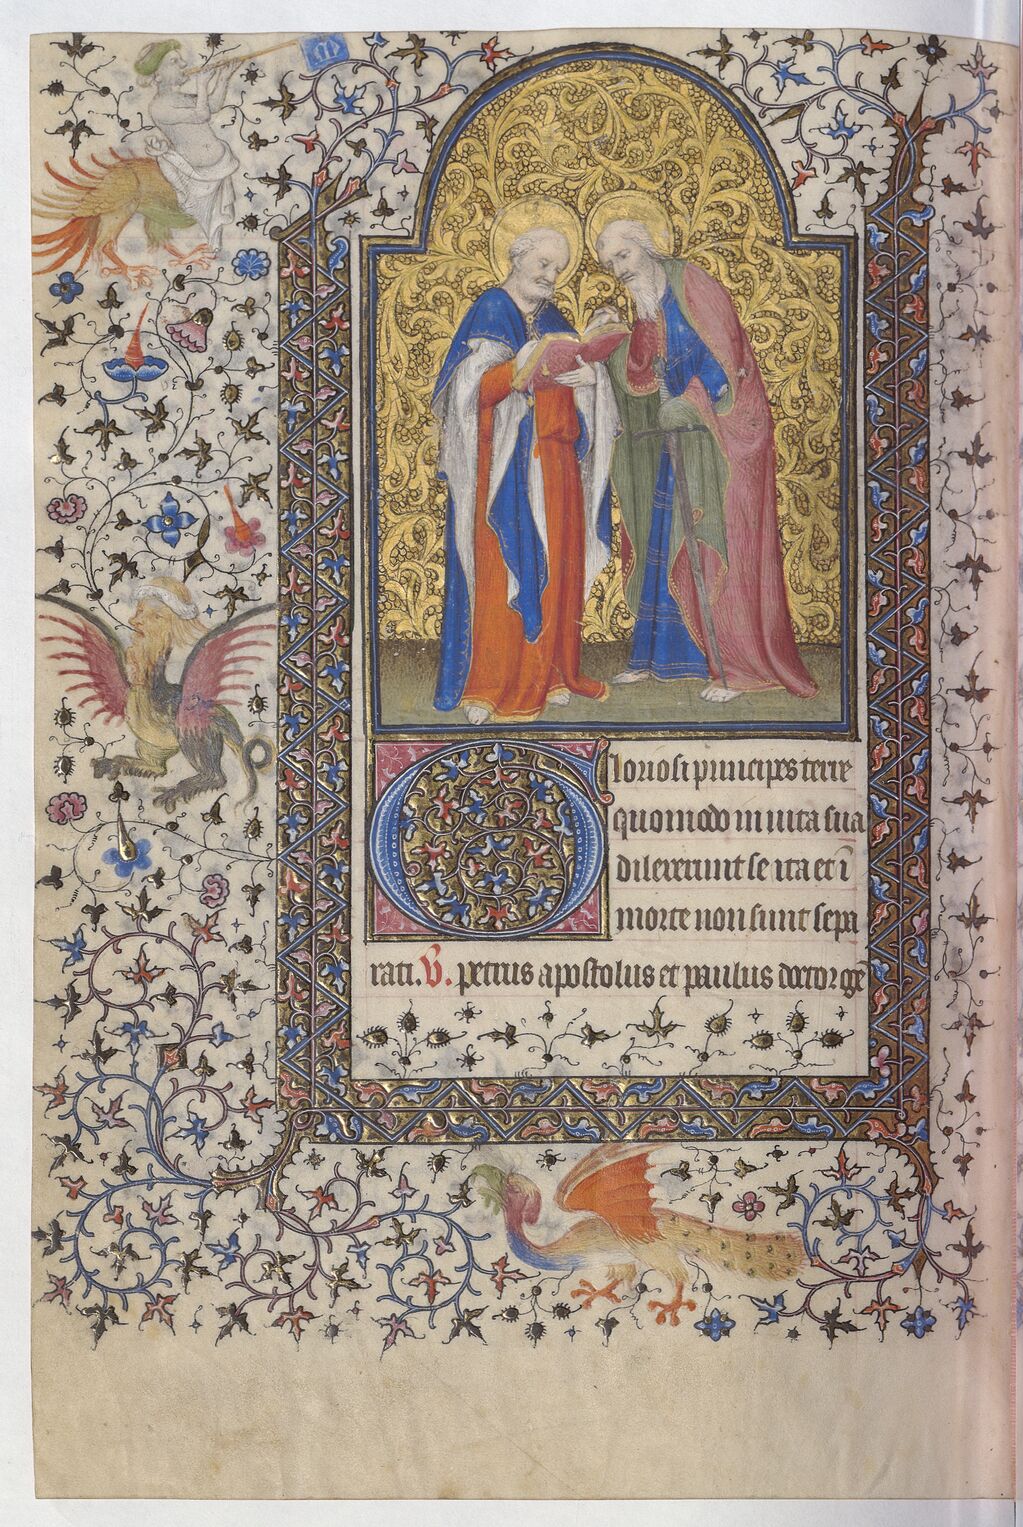 Gloriosi principes terre
quomodo in uita sua
dilexerunt se ita et ī
morte non sunt sepa
rati. V. petrus apostolus et paulus doctor gē